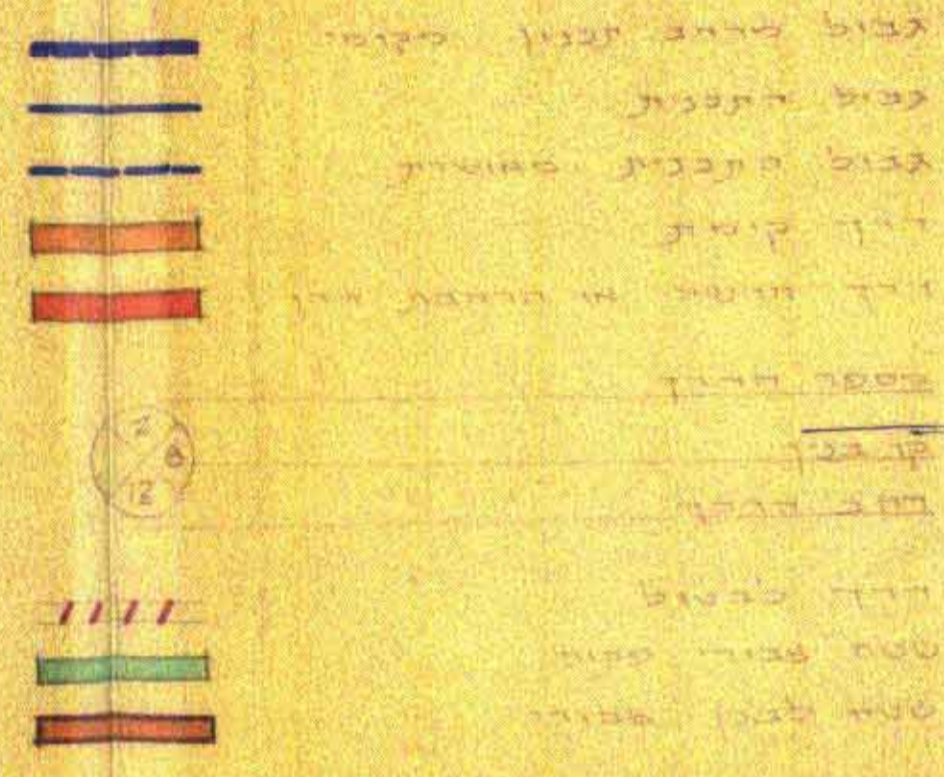 גבול מרחב תכנון מקומי
גבול התכנית
גבול התכנית מאושרת
דרך קימת
דרך חדשה או הרחבת דרך
מספר הדרך
7
קו בנין
8
רחב הדרך
12
דרך לבטול
שטח צבורי פתוח
שטח לבנין צבורי